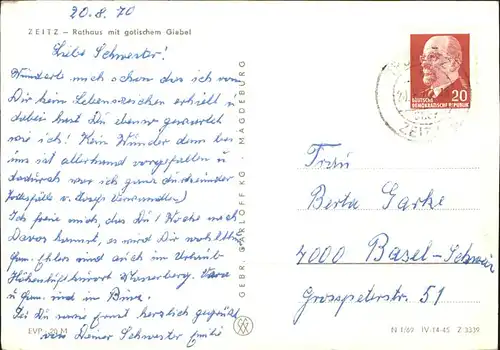 20.8.70
ZEITZ – Rathaus mit gotischem Giebel
Liebe Schwester!
Wunderte mich schon das ich von
Dir kein Lebenszeichen erhielt u
dabei hast Du ebenso gewartet
wie ich! Kein Wunder denn bei
uns ist allerhand vorgefallen u
dadurch war ich ganz durcheinander
Ich freue mich, das Du 1 Woche nach
Davos kannst, es wird Dir wohltun
sind auch im Urlaub
u. sind im
Sei Du vorne ernst herzlich gegrüßt
von Deiner Schwester Emilie
EVP -20 M
GEBR. GARLOFF KG · MAGDEBURG
DEUTSCHE
DEMOKRATISCHE REPUBLIK
20
ZEITZ
Frau
Berta Garke
4000 Basel-Schweiz
Grosspeterstr. 51
N 1/69 IV-14-45 Z 3339